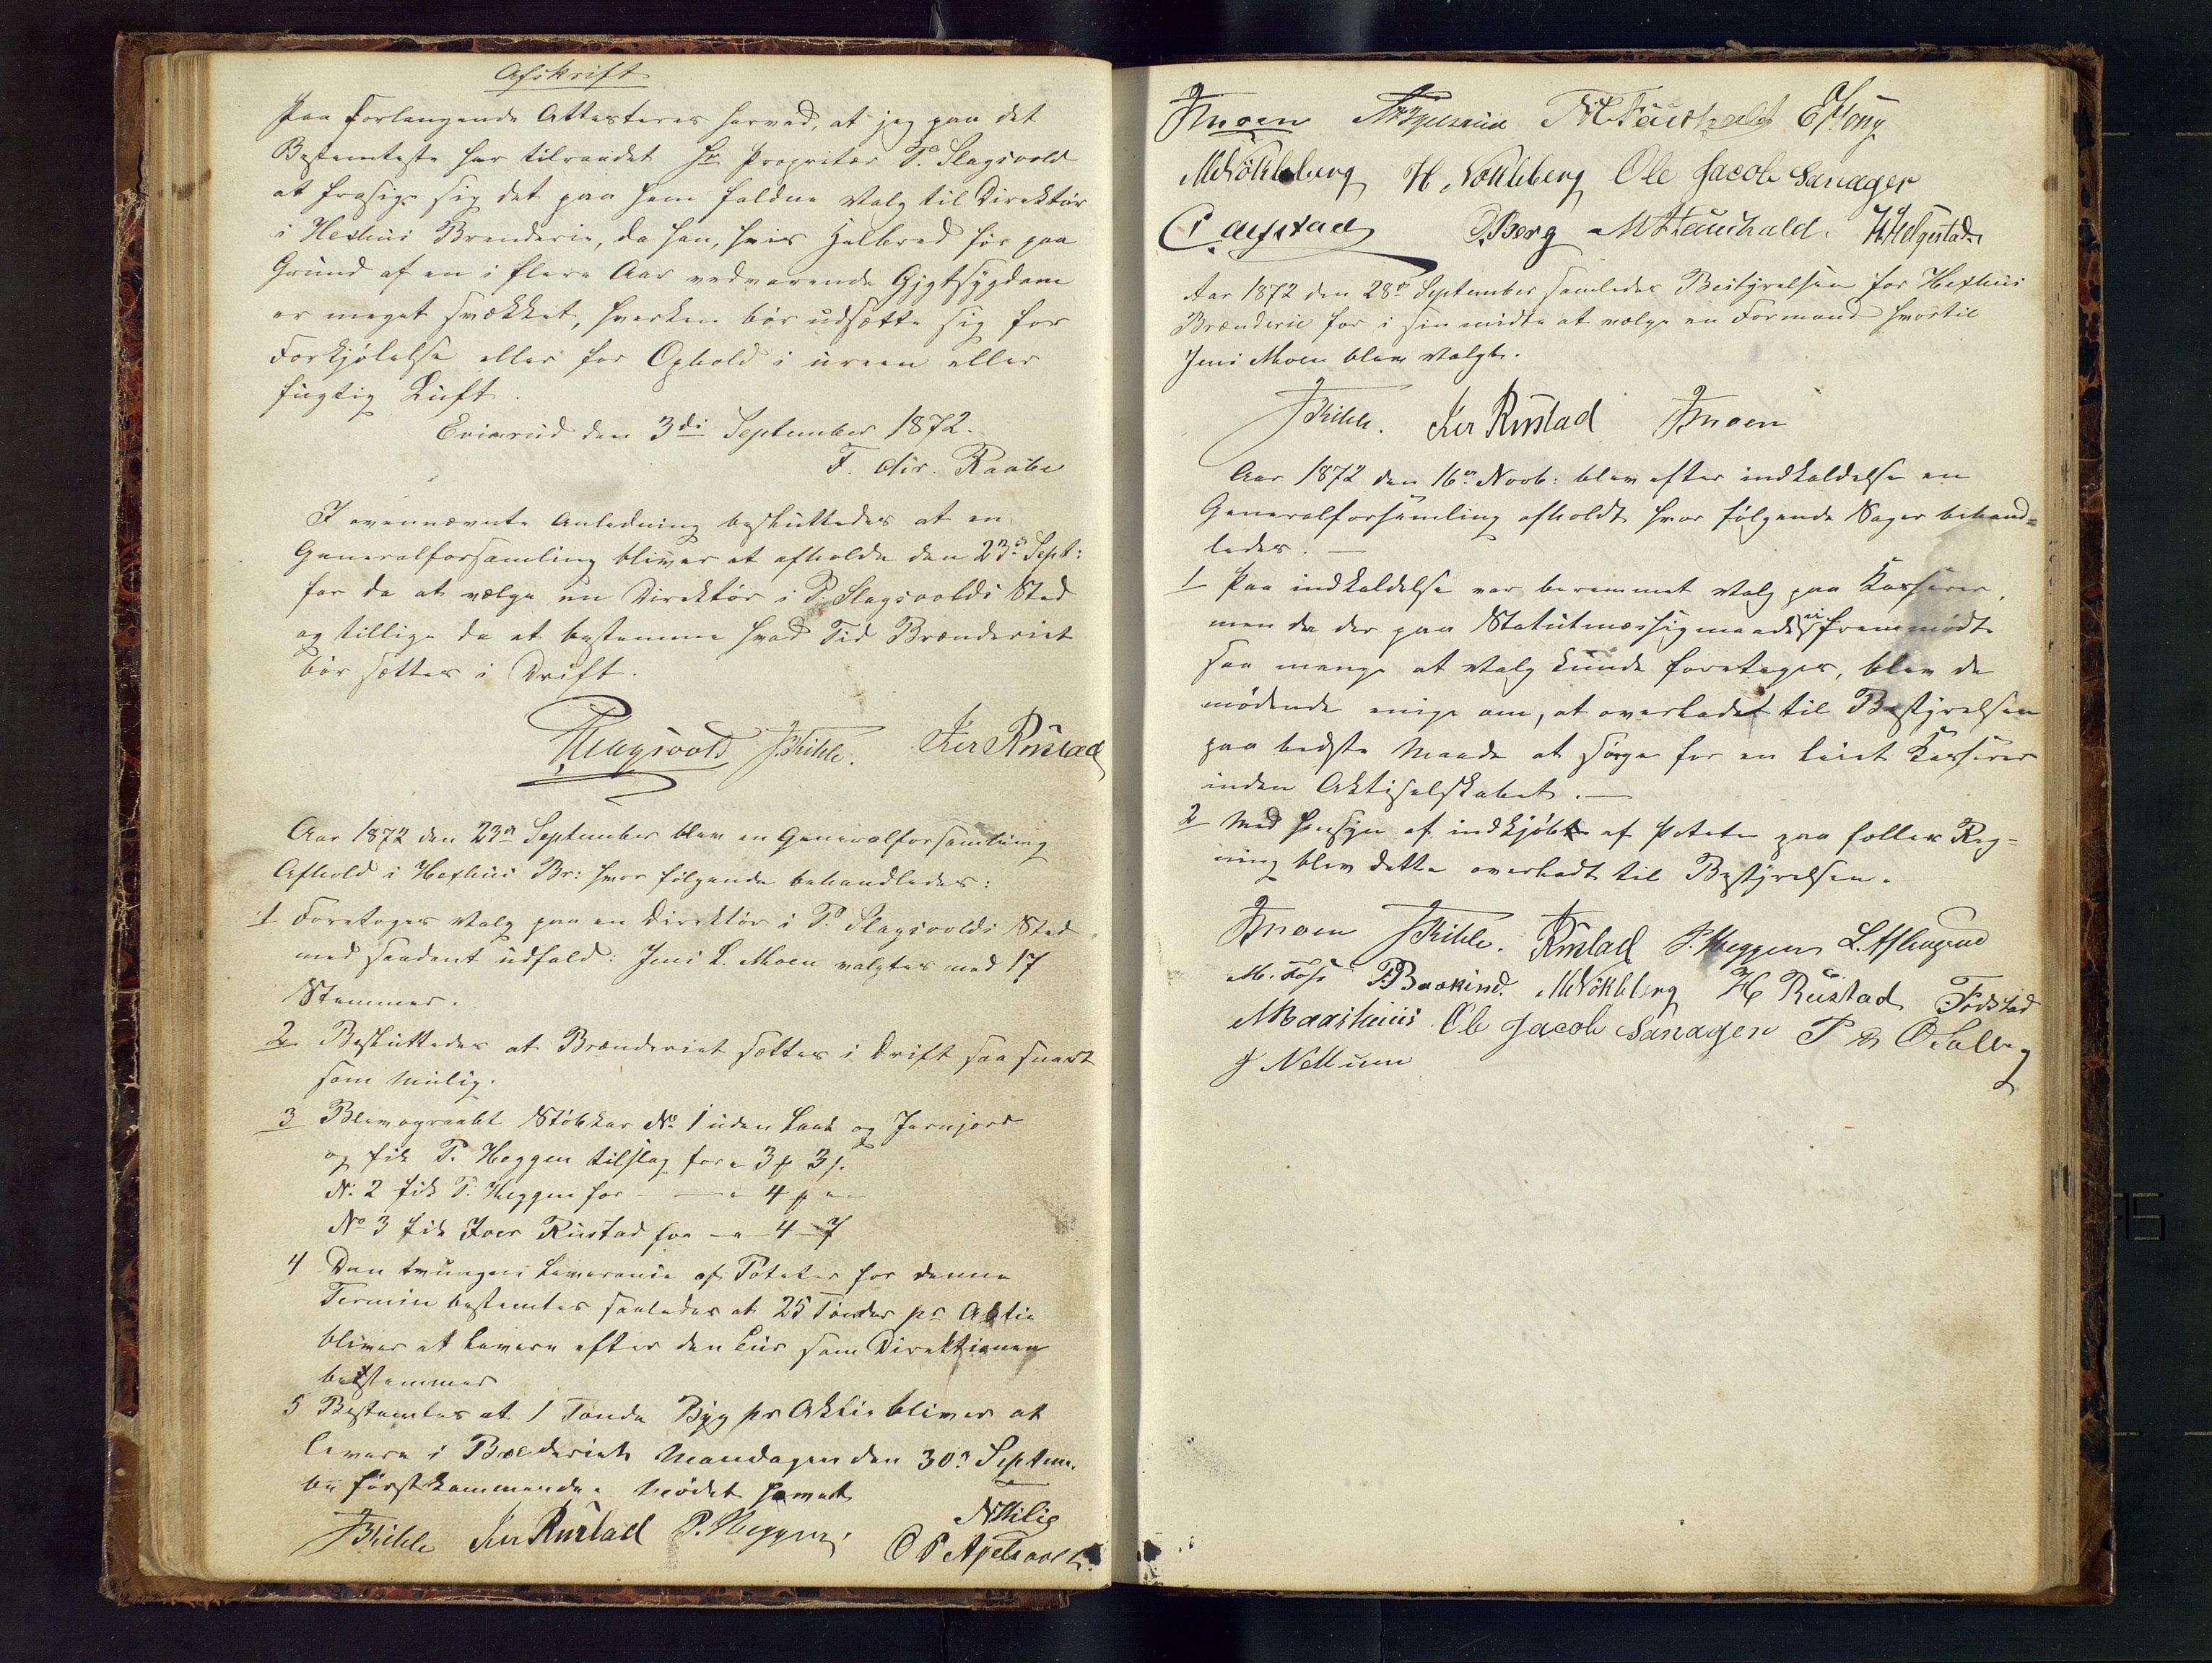 Afskrift
Paa Forlangende Attesteres herved, at jeg paa det
Bestemteste har tilraadet Hr Propritær P. Slagsvold
at frasige sig det paa ham faldne Valg til Direktør
i Hexhus Brenderie, da han, hvis Helbred før paa
Grund af en i flere Aar vedvarende Gigtsygdom
er meget svækket, hverken bør udsætte sig for
Forkjølelse eller for Ophold i ureen eller
fugtig Luft.
den 3di September 1872.
F. chir. Raabe
I ovennævnte Anledning besluttedes at en
Generalforsamling bliver at afholde den 23de Sept:
for da at vælge en Direktør i P. Slagsvolds Sted
og tillige da at bestemme hvad Tid Brænderiet
bør sættes i Drift.
P Slagsvold JKihle. Iver Rustad
Aar 1872 den 23de September blev en Generalforsamling
Afhold i Hexhus Br: hvor følgende behandledes:
1 Foretoges Valg paa en Direktør i P. Slagsvolds Sted
med saadant udfald: Jens L. Moen valgtes med 17
Stemmer.
2 Besluttedes at Brænderiet sættes i Drift saa snart
som mulig.
3 Blev opraabt Støbkar No 1 uden Laak og Jernjord
og fik P. Heggen tilslag for 3 3
N. 2 fik P. Heggen for 4
No 3 fik Iver Rustad for 4 7
4 Den tvungne Leverance af Poteter for denne
Termin bestemtes saaledes at 25 Tønder pr Aktie
bliver at levere efter den Liis som Direktionen
bestemmer
5 Bestemtes at 1 Tønde Byg pr Aktie bliver at
levere i Brænderiet Mandagen den 30te Septem.
be førstkommende. Mødet hævet
JKihle Iver Rustad P. Heggen NKilie
O P Apelsvold.
JMoen M Hauchald E Hong
M Nökleberg H. Nökleberg Ole Jacob Sanager
OBerg M Hauchald. H Helgestad.
Aar 1872 den 28de September samledes Bestyrelsen for Hexhus
Brænderie for i sin midte at vælge en Formand hvortil
Jens Moen blev Valgt.
JKihle. Iver Rustad JMoen
Aar 1872 den 16de Novb: blev efter indkaldelse en
Generalforsamling afholdt hvor følgende Sager behand=
ledes.
1 Paa indkaldelse var berammet Valg paa Kasserer,
men da der paa Statutmæssigmaade ei fremmødte
saa mange at Valg kunde foretages, blev de
mødende enige om, at overladet til Bestyrelsen
paa bedste Maade at sørge for en leiet Kasserer
inden Aktiselskabet.
2 Med Hensyn af indkjøbe af Poteter paa fælles Reg=
ning blev dette overladt til Bestyrelsen.
JMoen JKihle. Rustad P. Heggen
M. Foss M Nökleberg H Rustad Fodstad
Ole Jacob Sanager